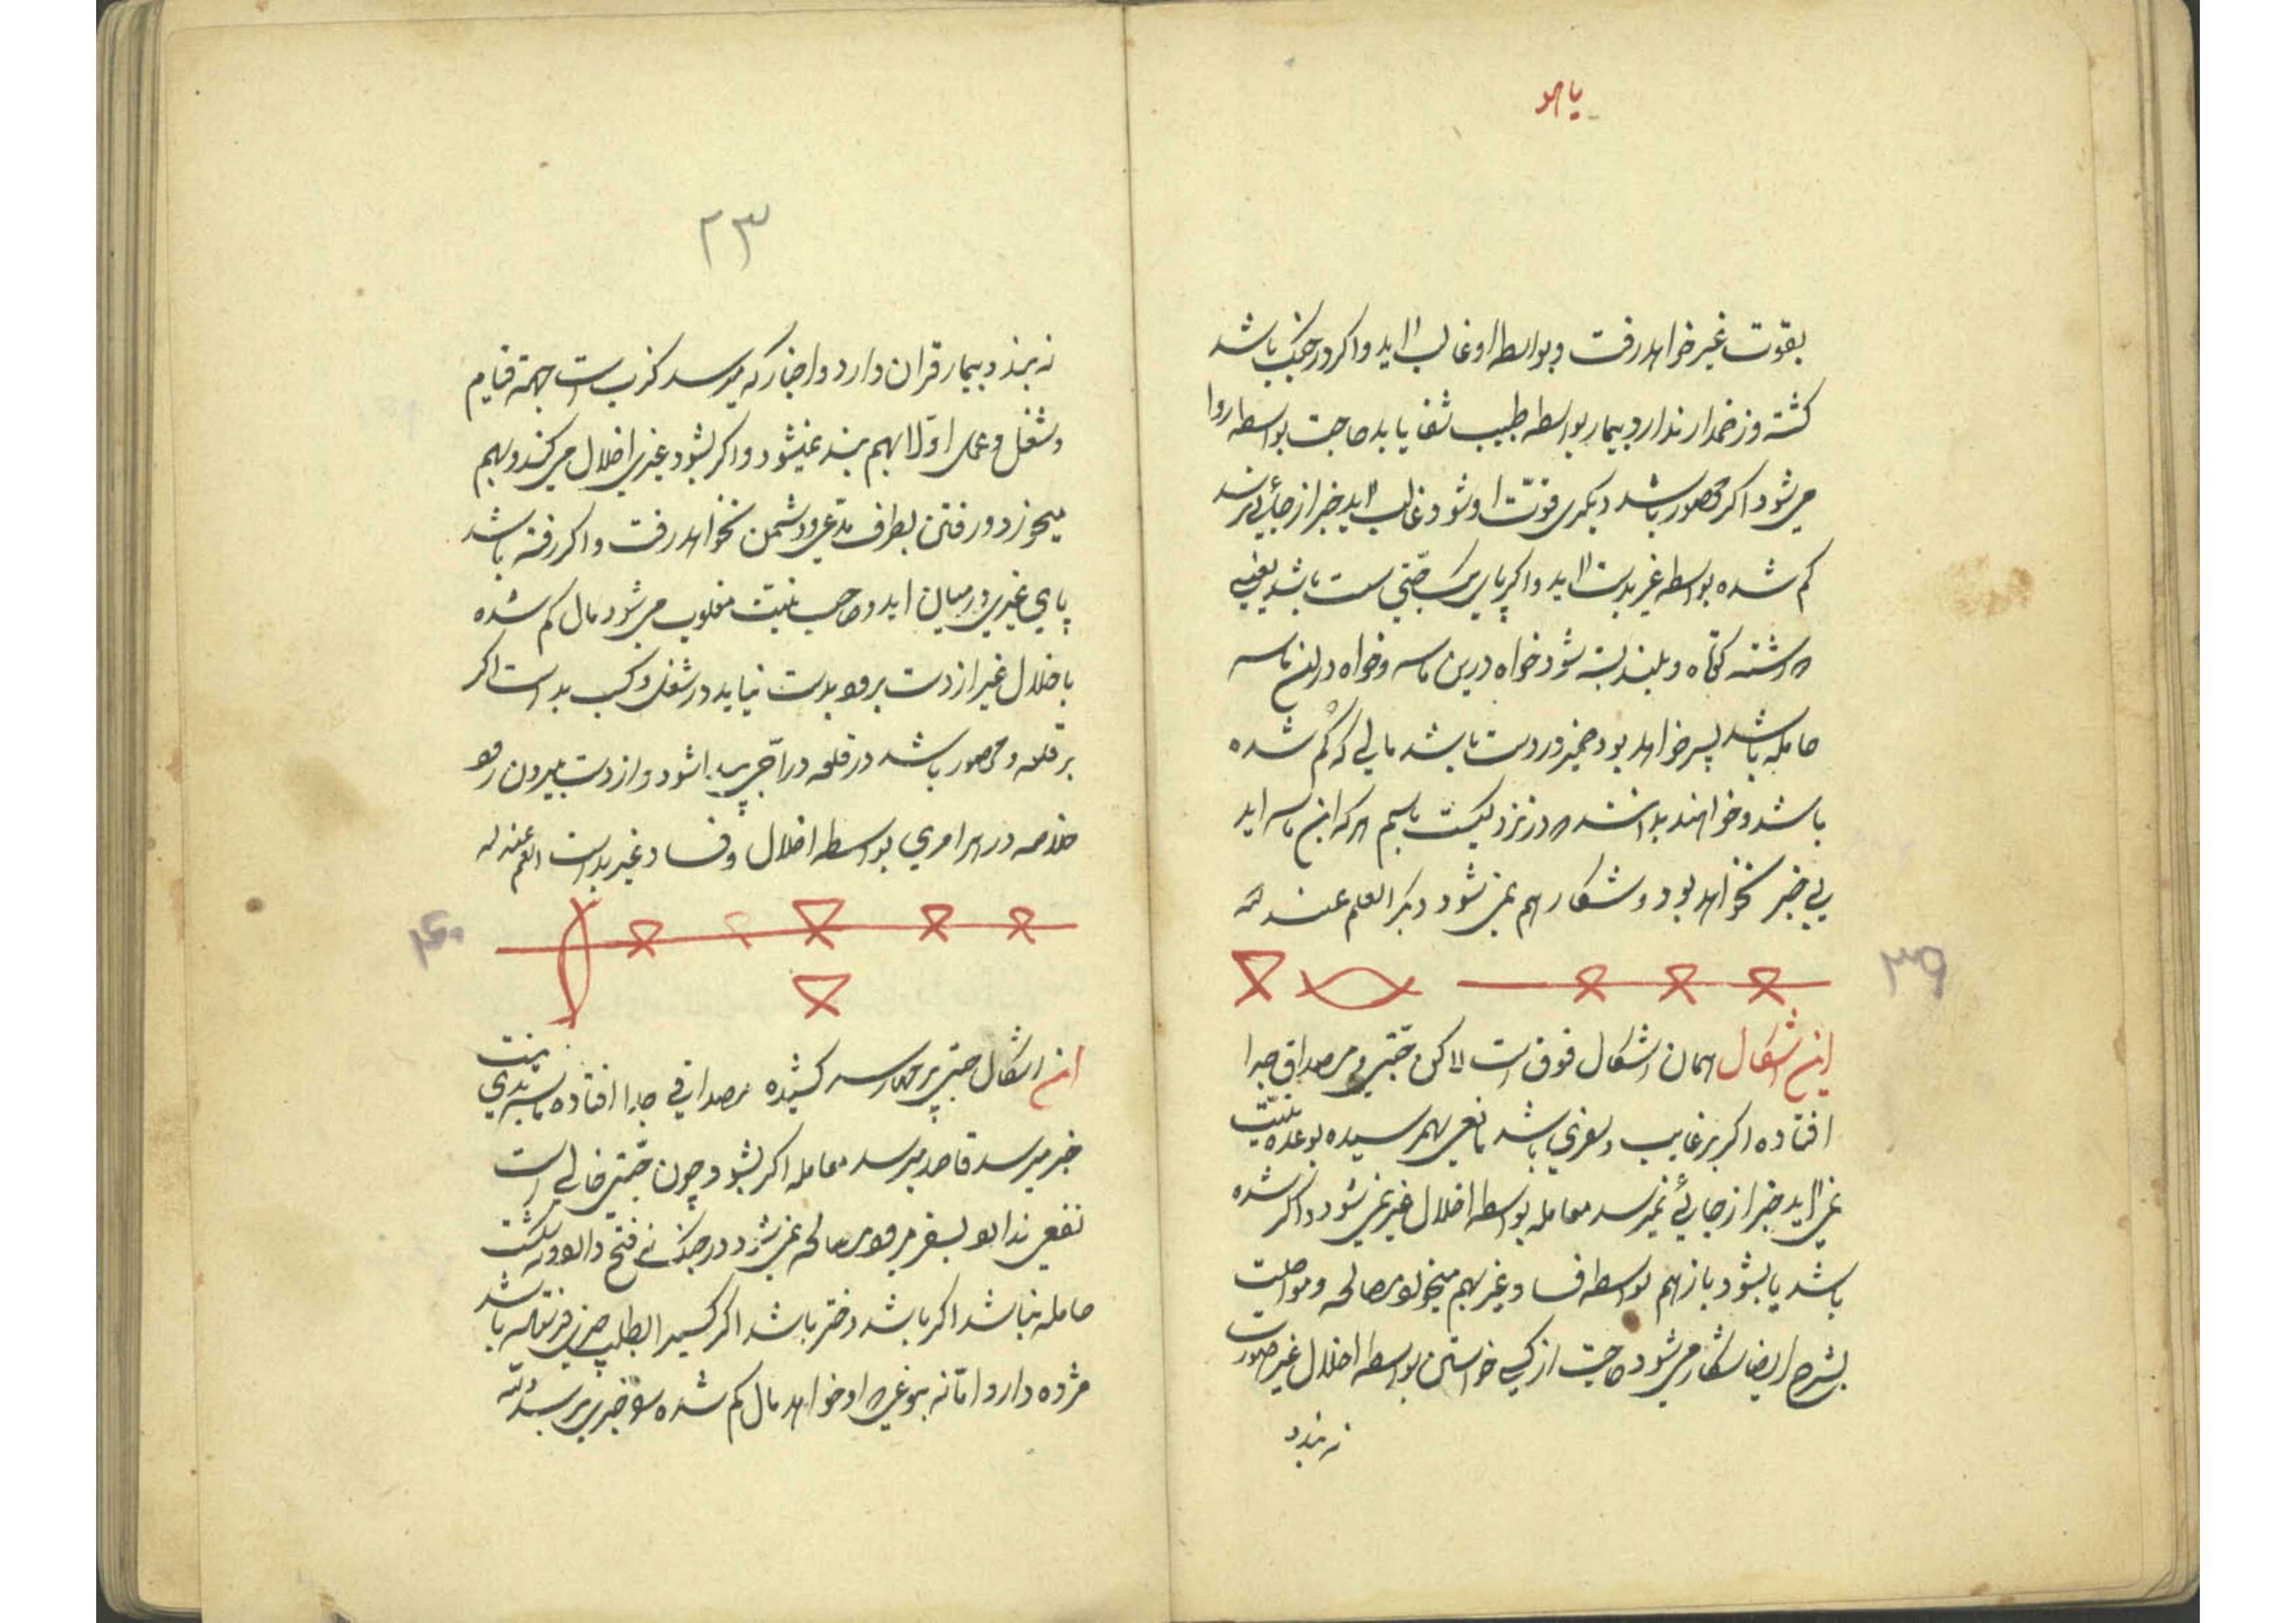 یا هو
بقوّت غیر خواهد رفت و بواسطه او غالب اید و اکر در جنک باشد
کشته و زخمدار ندارد و بیمار بواسطه طبیب شفا یابد حاجت بواسطه روا
می شود اکر محصور باشد دیکری قوّت او شود غالب اید خبر از جائی نرسد
کم شده بواسطه غیر بدست اید و اکر پای یک جتی ست باشد یعنی
رشته کوتاه و بلند بسته شود خواه درین تاسه و خواه در ان تاسه
حامله باشد پسر خواهد بود خیر در دست باشد مالی که کم شده
باشد و خواهند بدانند در نزد کیست باسم هر که این تاسه اید
بی خبر نخواهد بود و شکار هم نمی شود دیکر العلم عند الله
۳۹
این اشکال همان اشکال فوق است لاکن جتی و مصداق جدا
افتاده اکر بر غایب و سفری باشد مانعی بهم رسیده بوعده نیّت
نمی اید خبر از جائی نمیرسد معامله بواسطه اخلال غیر نمی شود و اکر شده
باشد یا بشود باز هم بواسطه فساد غیر بهم میخورد مصالحه و مواصلت
بشرح ایضا شکار می شود حاجت از کسی خواستن بواسطه اخلال غیر صورت
نه بندد
۲۳
نه بندد بیمار قران دارد و اخبار که میرسد کذب است جهة قیام
و شغل و عمل اولا بهم بند نمیشود و اکر بشود غیری اخلال می کند و بهم
میخورد و رفتن بطرف مدّعی و دشمن نخواهد رفت و اکر رفته باشد
پای غیری در میان اید و صاحب نیّت مغلوب می شود مال کم شده
باخلال غیر از دست برود بدست نیاید در شغل و کسب بد است اکر
بر قلعه و محصور باشد در قلعه در اخر پیدا شود و از دست بیرون رود
خلاصه در هر امری بواسطه اخلال و فساد غیر بد است العلم عند الله
۴۰
این اشکال جتی بر چهار سه کشیده مصداقی جدا افتاده باشد بدی نیت
خبر میرسد قاصد میرسد معامله اکر بشود چون جتی خالی است
نفعی ندارد بسفر میرود مصالحه نمی شود در جنک نه فتح دارد و نه شکست
حامله نباشد اکر باشد دختر باشد اکر کسیرا بطلب چیزی فرستاده باشد
مژده دارد امّا نه بنوعی که او خواهد مال کم شده خبری برسد